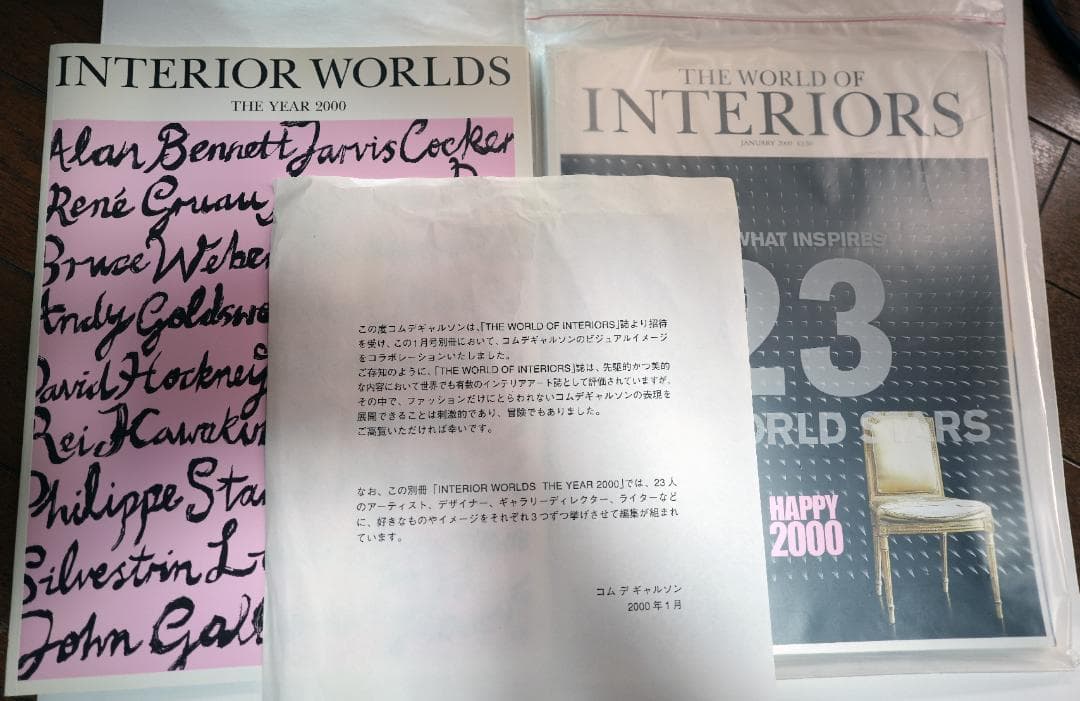 INTERIOR WORLDS
THE YEAR 2000
Alan Bennett Jarvis Cocker
René Gruau
Bruce Weber
Andy
David Hockney
Rei
Philippe
Silvestrin
John
この度コムデギャルソンは、「THE WORLD OF INTERIORS」誌より招待
を受け、この1月号別冊において、コムデギャルソンのビジュアルイメージ
をコラボレーションいたしました。
ご存知のように、「THE WORLD OF INTERIORS」誌は、先駆的かつ美的
な内容において世界でも有数のインテリアアート誌として評価されていますが、
その中で、ファッションだけにとらわれないコムデギャルソンの表現を
展開できることは刺激的であり、冒険でもありました。
ご高覧いただければ幸いです。
なお、この別冊「INTERIOR WORLDS THE YEAR 2000」では、23人
のアーティスト、デザイナー、ギャラリーディレクター、ライターなど
に、好きなものやイメージをそれぞれ3つずつ挙げさせて編集が組まれ
ています。
コム デ ギャルソン
2000年1月
THE WORLD OF
INTERIORS
JANUARY 2000
WHAT INSPIRES
23
WORLD STARS
HAPPY
2000